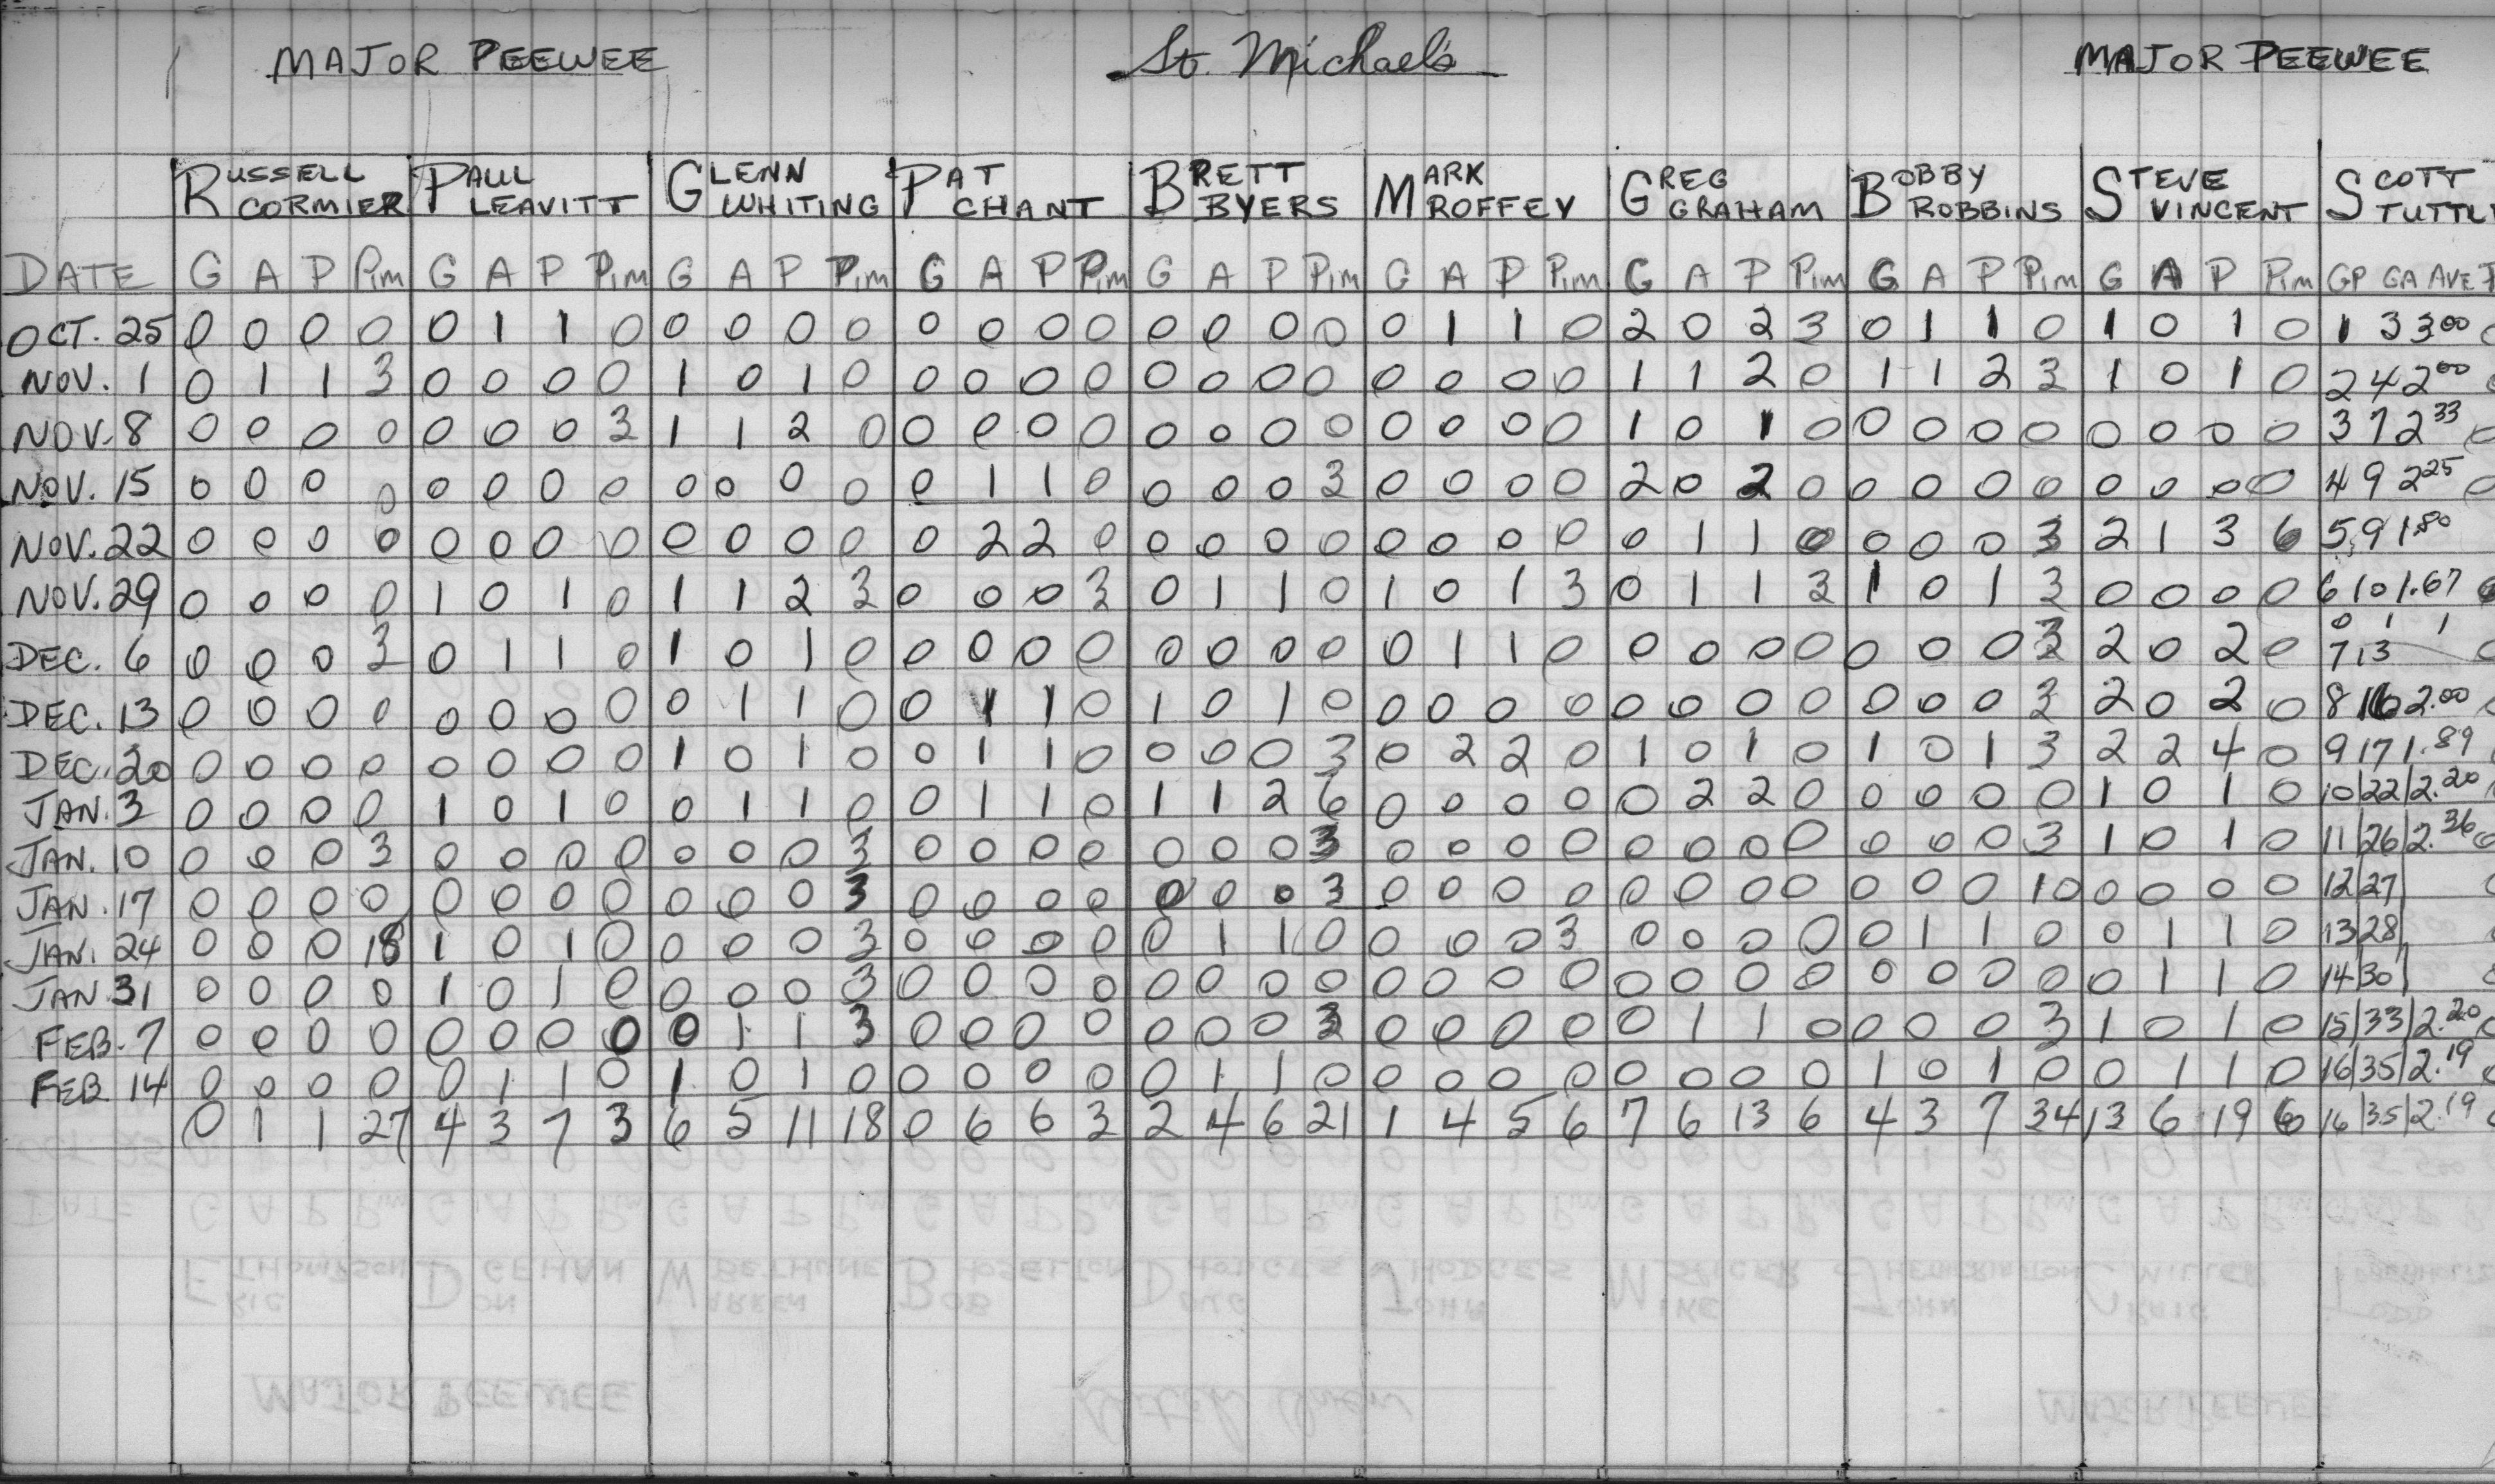 MAJOR PEEWEE St. Michael's MAJOR PEEWEE
RUSSELL CORMIER PAUL LEAVITT GLENN WHITING PAT CHANT BRETT BYERS MARK ROFFEY GREG GRAHAM BOBBY ROBBINS STEVE VINCENT SCOTT TUTTL
DATE G A P Pim G A P Pim G A P Pim G A P Pim G A P Pim G A P Pim G A P Pim G A P Pim G A P Pim GP GA AVE
OCT. 25 0 0 0 0 0 1 1 0 0 0 0 0 0 0 0 0 0 0 0 0 0 1 1 0 2 0 2 3 0 1 1 0 1 0 1 0 1 3 3.00
NOV. 1 0 1 1 3 0 0 0 0 1 0 1 0 0 0 0 0 0 0 0 0 0 0 0 0 1 1 2 0 1 1 2 3 1 0 1 0 2 4 2.00
NOV. 8 0 0 0 0 0 0 0 3 1 1 2 0 0 0 0 0 0 0 0 0 0 0 0 0 1 0 1 0 0 0 0 0 0 0 0 0 3 7 2.33
NOV. 15 0 0 0 0 0 0 0 0 0 0 0 0 0 1 1 0 0 0 0 3 0 0 0 0 2 0 2 0 0 0 0 0 0 0 0 0 4 9 2.25
NOV. 22 0 0 0 0 0 0 0 0 0 0 0 0 0 2 2 0 0 0 0 0 0 0 0 0 0 1 1 0 0 0 0 3 2 1 3 6 5 9 1.80
NOV. 29 0 0 0 0 1 0 1 0 1 1 2 3 0 0 0 3 0 1 1 0 1 0 1 3 0 1 1 3 1 0 1 3 0 0 0 0 6 10 1.67
DEC. 6 0 0 0 3 0 1 1 0 1 0 1 0 0 0 0 0 0 0 0 0 0 1 1 0 0 0 0 0 0 0 0 3 2 0 2 0 7 13 0 1 1
DEC. 13 0 0 0 0 0 0 0 0 0 1 1 0 0 1 1 0 1 0 1 0 0 0 0 0 0 0 0 0 0 0 0 3 2 0 2 0 8 16 2.00
DEC. 20 0 0 0 0 0 0 0 0 1 0 1 0 0 1 1 0 0 0 0 3 0 2 2 0 1 0 1 0 1 0 1 3 2 2 4 0 9 17 1.89
JAN. 3 0 0 0 0 1 0 1 0 0 1 1 0 0 1 1 0 1 1 2 6 0 0 0 0 0 2 2 0 0 0 0 0 1 0 1 0 10 22 2.20
JAN. 10 0 0 0 3 0 0 0 0 0 0 0 3 0 0 0 0 0 0 0 3 0 0 0 0 0 0 0 0 0 0 0 3 1 0 1 0 11 26 2.36
JAN. 17 0 0 0 0 0 0 0 0 0 0 0 3 0 0 0 0 0 0 0 3 0 0 0 0 0 0 0 0 0 0 0 10 0 0 0 0 12 27
JAN. 24 0 0 0 18 1 0 1 0 0 0 0 3 0 0 0 0 0 1 1 0 0 0 0 3 0 0 0 0 0 1 1 0 0 1 1 0 13 28
JAN 31 0 0 0 0 1 0 1 0 0 0 0 3 0 0 0 0 0 0 0 0 0 0 0 0 0 0 0 0 0 0 0 0 0 1 1 0 14 30
FEB. 7 0 0 0 0 0 0 0 0 0 1 1 3 0 0 0 0 0 0 0 3 0 0 0 0 0 1 1 0 0 0 0 3 1 0 1 0 15 33 2.20
FEB 14 0 0 0 0 0 1 1 0 1 0 1 0 0 0 0 0 0 1 1 0 0 0 0 0 0 0 0 0 1 0 1 0 0 1 1 0 16 35 2.19
0 1 1 27 4 3 7 3 6 5 11 18 0 6 6 3 2 4 6 21 1 4 5 6 7 6 13 6 4 3 7 34 13 6 19 6 16 35 2.19